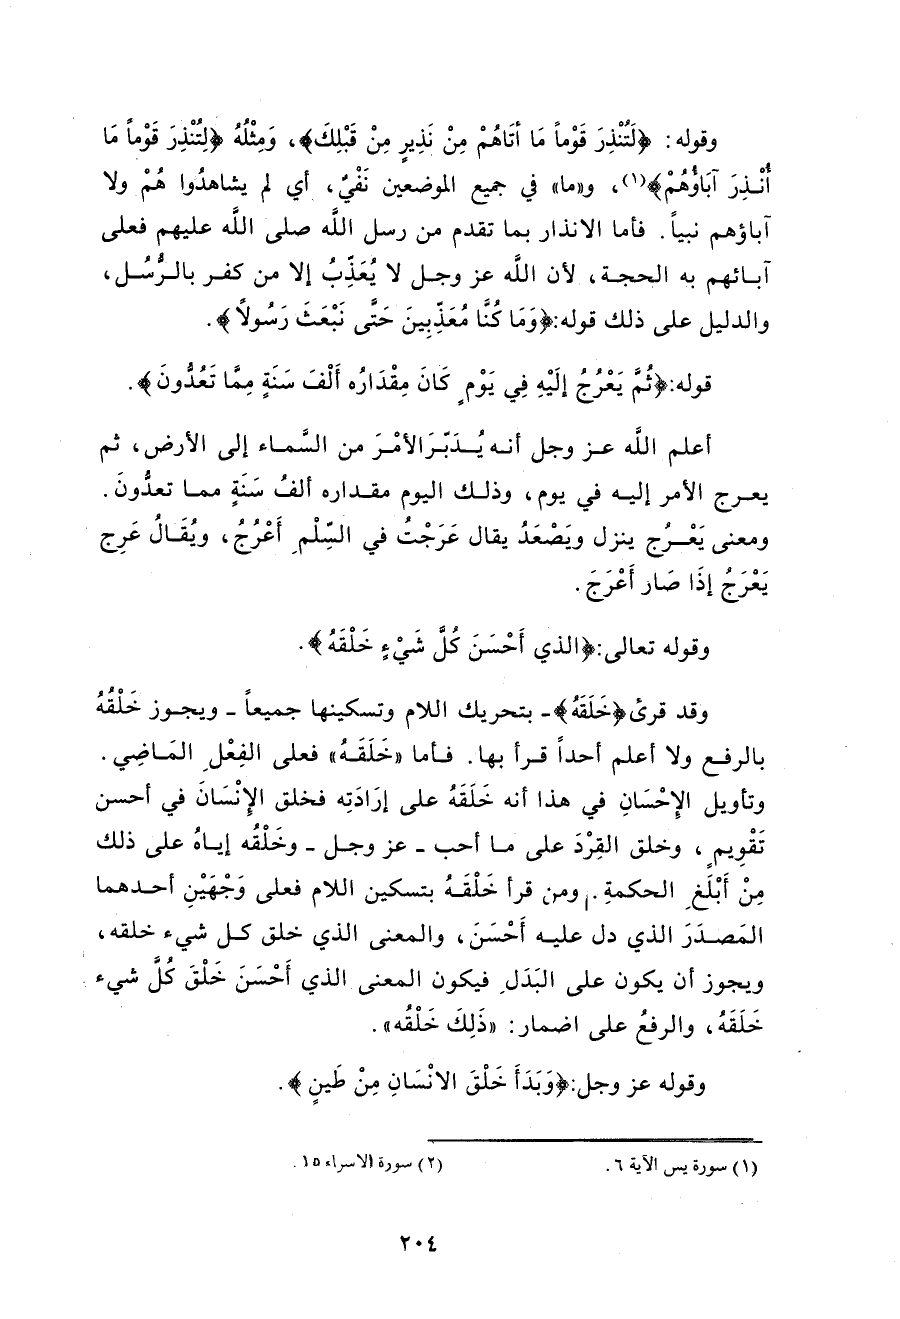 وقوله : ﴿لَتُنْذِرَ قَوْماً مَا أَتَاهُمْ مِنْ نَذِيرٍ مِنْ قَبْلِكَ﴾، وَمِثْلُهُ ﴿لِتُنْذِرَ قَوْماً مَا
أُنْـذِرَ آبَاؤُهُمْ﴾(١)، و«ما» في جميع الموضعين نَفْيٌ، أي لم يشاهدُوا هُمْ ولا
آباؤهم نبياً. فأما الانذار بما تقدم من رسل اللَّه صلى اللَّه عليهم فعلى
آبـائهم به الحجـة، لأن اللَّه عز وجـل لا يُعَذِّبُ إلا من كفـر بالـرُّسُـل،
والدليل على ذلك قوله:﴿وَمَا كُنَّا مُعَذِّبِينَ حَتَّى نَبْعَثَ رَسُولاً﴾.
قوله:﴿ثُمَّ يَعْرُجُ إِلَيْهِ فِي يَوْمٍ كَانَ مِقْدَارُه أَلْفَ سَنَةٍ مِمَّا تَعُدُّونَ﴾.
أعلم اللَّه عـز وجل أنـه يُـدَبِّرَ الأمْرَ من السَّمـاء إلى الأرض، ثم
يعـرج الأمر إليـه في يوم، وذلـك اليوم مقـداره ألفُ سَنَةٍ ممـا تعدُّونَ.
ومعنى يَعْـرُج ينزل ويَصْعَدُ يقال عَرَجْتُ في السِّلْمِ أَعْرُجُ، ويُقَـالُ عَرِج
يَعْرَجُ إذَا صَار أَعْرَجَ.
وقوله تعالى:﴿الذي أَحْسَنَ كُلَّ شَيْءٍ خَلْقَهُ﴾.
وقد قرئ﴿خَلَقَهُ﴾ـ بتحريك اللام وتسكينها جميعاً ـ ويجـوز خَلْقُهُ
بالرفـع ولا أعلم أحداً قـرأ بها. فـأما «خَلَقَـهُ» فعلى الفِعْلِ المَـاضِي.
وتأويل الإِحْسَانِ في هذا أنه خَلَقَهُ على إرَادَتِه فخلق الإِنْسَانَ في أحسن
تَقْوِيمٍ، وخلق القِرْدَ على مـا أحب ـ عز وجـل ـ وخَلْقُه إياهُ على ذلك
مِنْ أَبْلَغِ الحكمةِ. ومن قرأ خَلْقَـهُ بتسكين اللام فعلى وَجْهَيْنِ أحـدهما
المَصـدَرَ الذي دل عليـه أَحْسَنَ، والمعنى الذي خلق كـل شيء خلقه،
ويجوز أن يكون على البَدَلِ فيكون المعنى الذي أَحْسَنَ خَلْقَ كُلَّ شيء
خَلَقَهُ، والرفعُ على اضمار: «ذَلِكَ خَلْقُه».
وقوله عز وجل:﴿وَبَدَأَ خَلْقَ الانْسَانِ مِنْ طَينٍ﴾.
(١) سورة يس الآية ٦.
(٢) سورة الاسراء ١٥.
٢٠٤